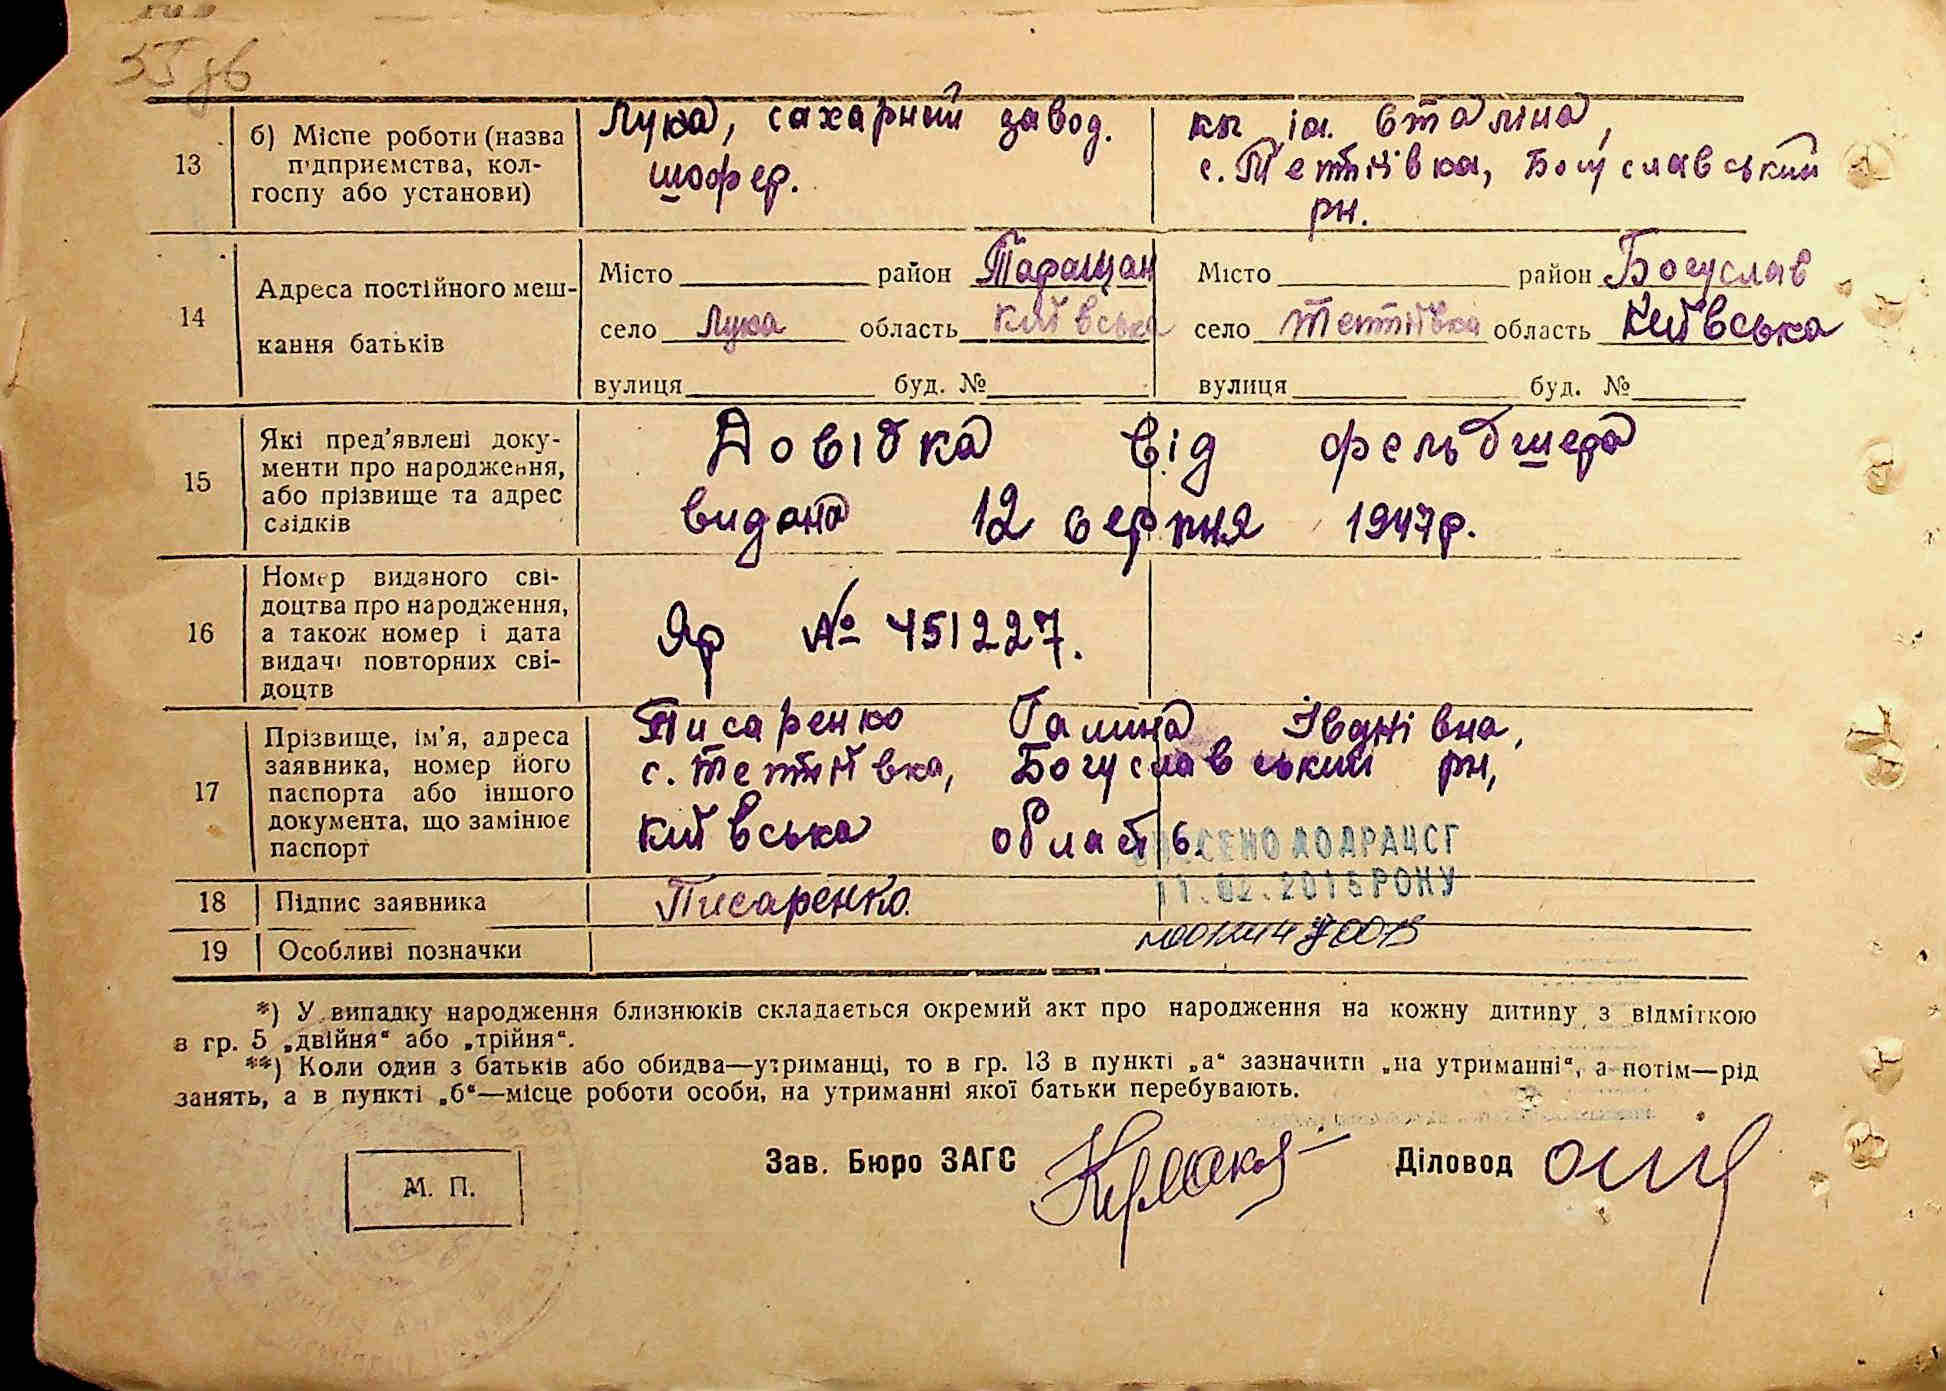 13
б) Місце роботи (назва
підприємства, кол-
госпу або установи)
Лука, сахарний завод.
шофер.
кг ім. Сталіна,
с. Тетіївка, Богуславський
рн.
14
Адреса постійного меш-
кання батьків
Місто район Таращан
село Лука область Київська
вулиця буд. №
Місто район Богуслав
село Тетіївка область Київська
вулиця буд. №
15
Які пред'явлені доку-
менти про народження,
або прізвище та адрес
свідків
Довідка від фельдшера
видана 12 серпня 1947р.
16
Номер виданого сві-
доцтва про народження,
а також номер і дата
видачі повторних сві-
доцтв
Яр № 451227.
17
Прізвище, ім'я, адреса
заявника, номер його
паспорта або іншого
документа, що замінює
паспорт
Писаренко Галина Іванівна,
с. Тетіївка, Богуславський рн,
Київська область.
ВНЕСЕНО ДО ДРАЦСГ
11.02.2015 РОКУ
18
Підпис заявника
Писаренко.
19
Особливі позначки
*) У випадку народження близнюків складається окремий акт про народження на кожну дитину з відміткою
в гр. 5 „двійня“ або „трійня“.
**) Коли один з батьків або обидва—утриманці, то в гр. 13 в пункті „а“ зазначити „на утриманні“, а потім—рід
занять, а в пункті „б“—місце роботи особи, на утриманні якої батьки перебувають.
М. П.
Зав. Бюро ЗАГС
Діловод